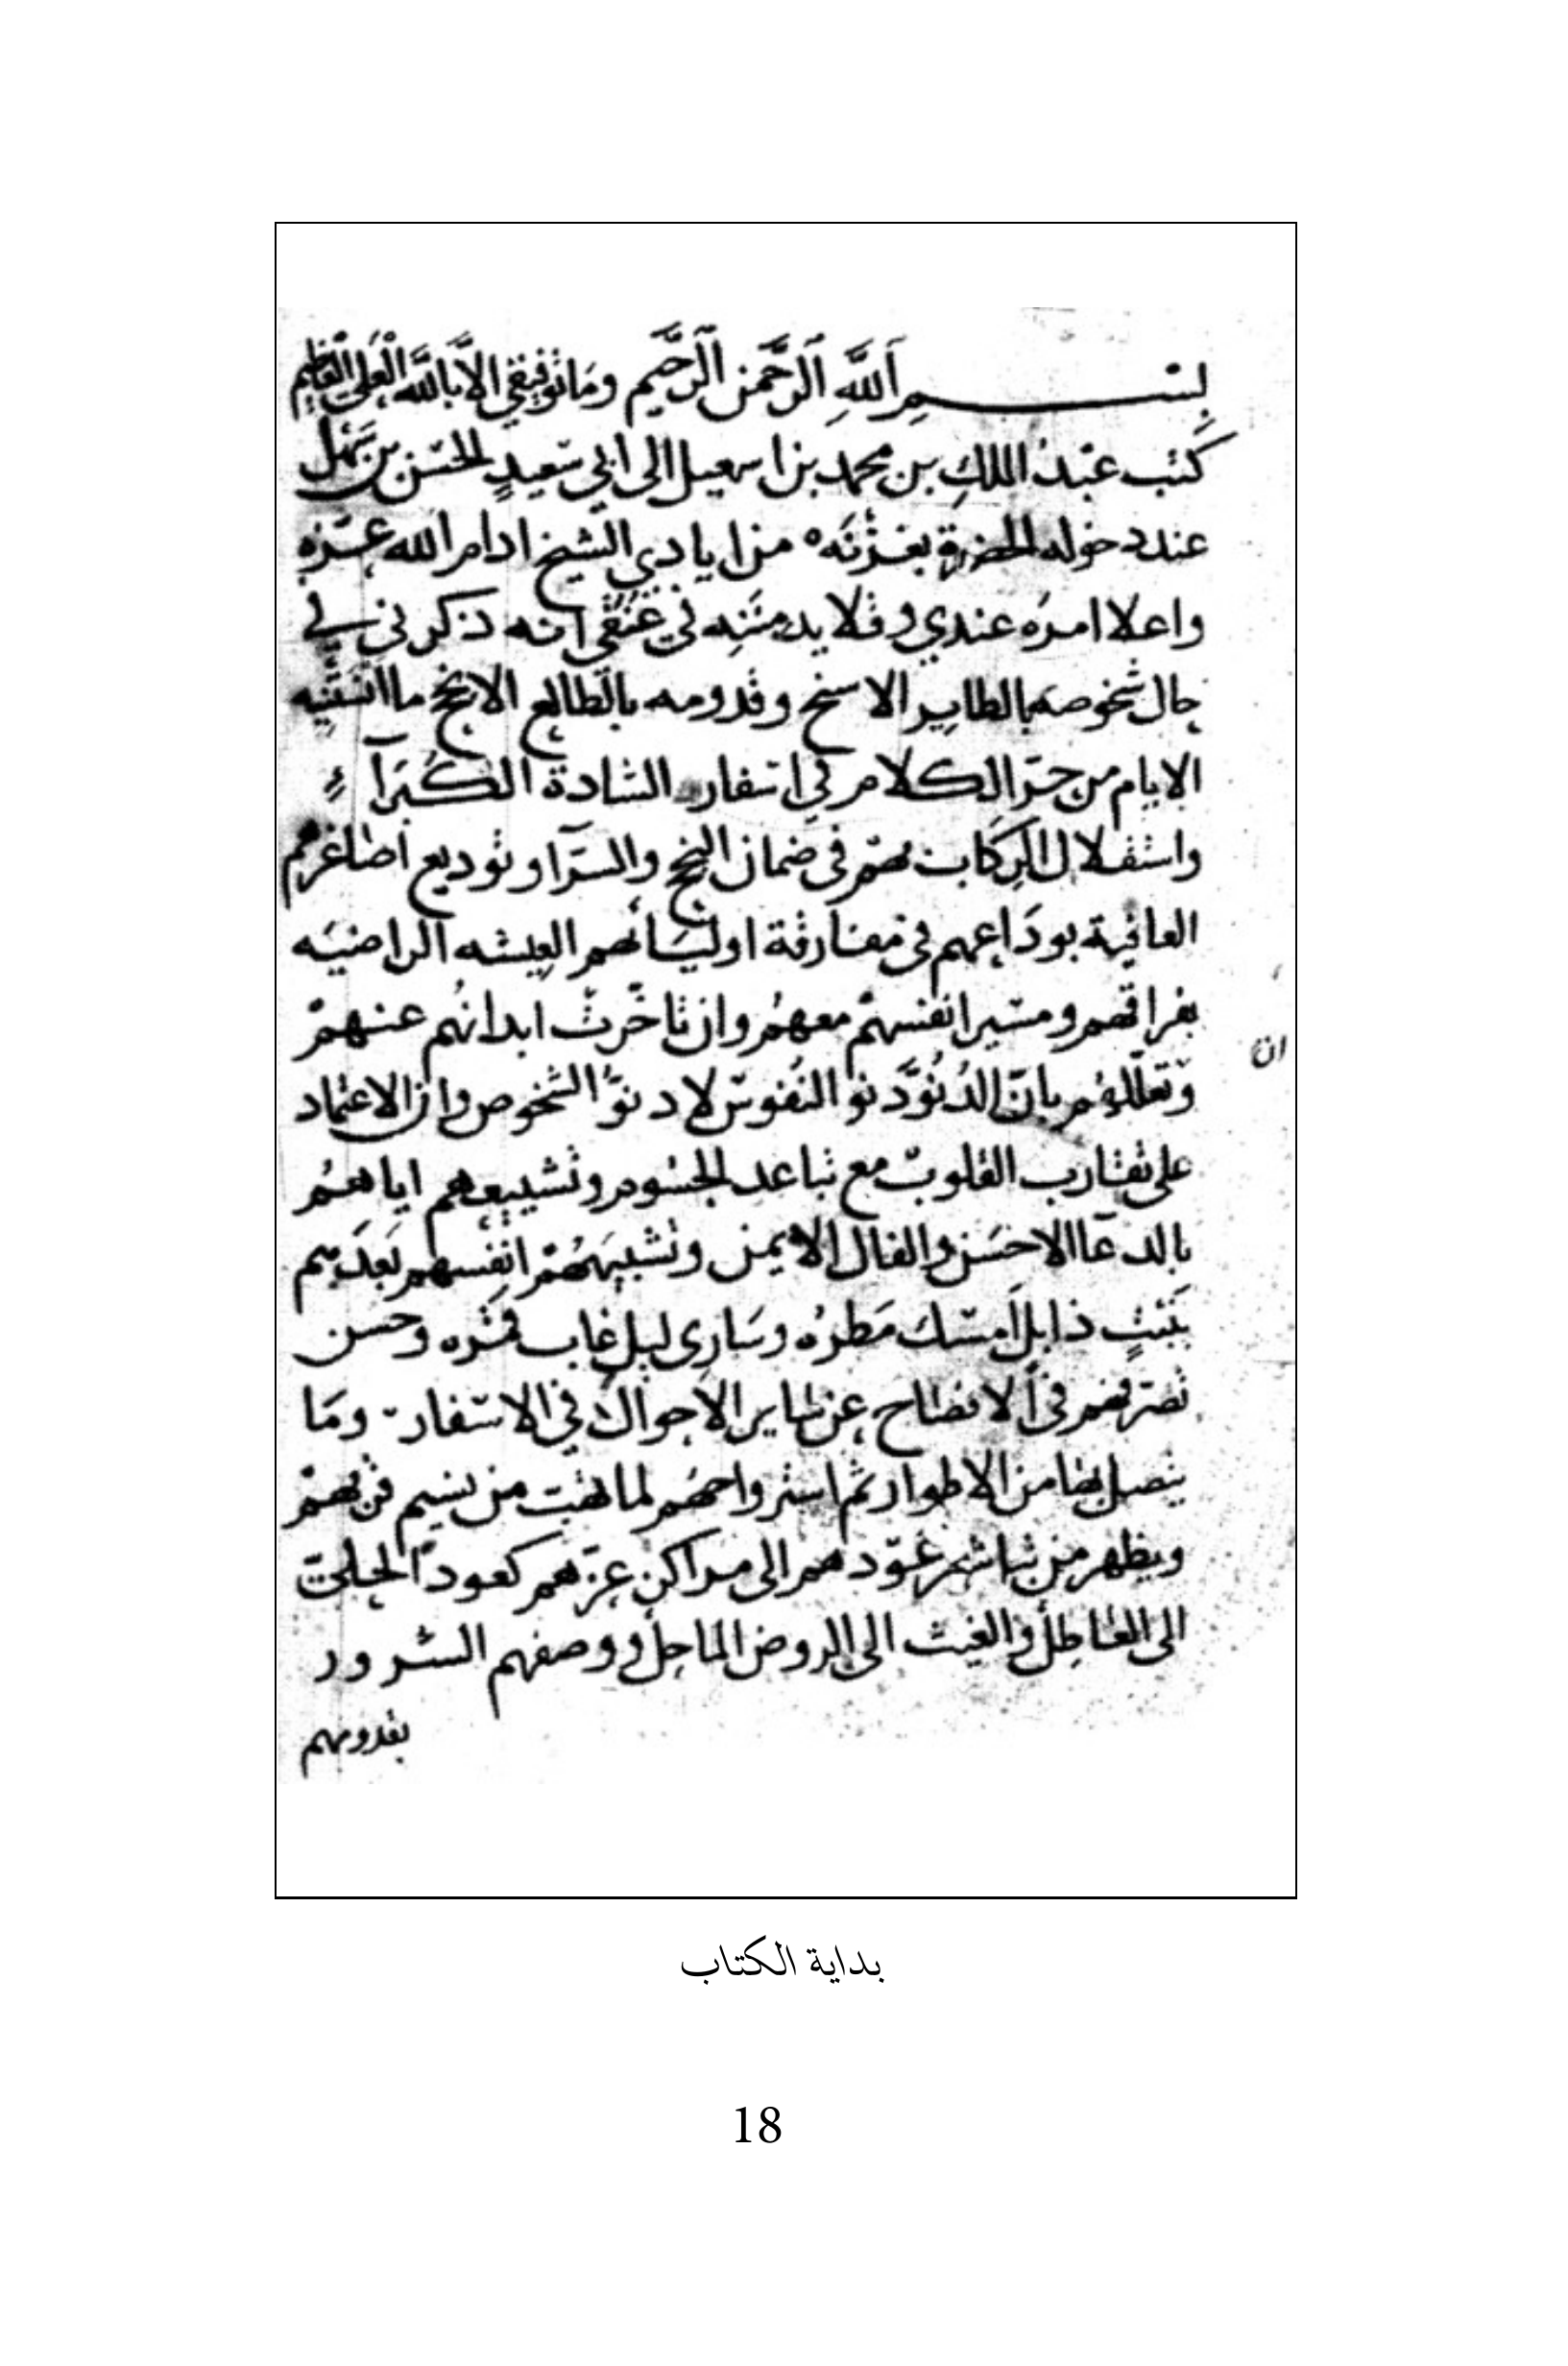 بِسْمِ اَللَّهِ اَلرَّحْمنِ اَلرَّحِيم ومَا توفيقي الاَّ باللَّه العَلي العَظيم
كتب عبْدُ الملكِ بن محمد بن اسمعيل الى ابي سَعيدٍ الحسَن بن سَهْل
عند دخوله الحضرة بغزنَه من ايادي الشيخ ادام الله عزه
واعلا امرَه عندي وقلايد مننِه في عُنُقي انه ذكرني في
حال شخوصه بالطاير الاسنح وقدومه بالطالع الانجح ما
الايام من حرّ الكلام في اسفار السَادة الكُبَرآءِ
واستقلال الركاب بهم في ضمان النجح والسرّآ وتوديع
العافية بودَاعهم في مفارقة اوليَائهم العيشه الراضيَه
بفراقهم ومسير انفسهمْ معهمُ وان تاخّرتْ ابدانُهم عنهمْ
ان
وتعلّلهُم بانّ الدُنُوَّ دنو النُفوسْ لا دنوُّ الشخوص وان الاعتماد
على تقارب القلوبْ مع تباعد الجسُوم وتشييعهم اياهُم
بالدعآ الاحسَن والفال الايمن وتشبيهَهُمْ انفسهم بَعدَهم
بنَبْتٍ ذابل اَمسَك مَطرُه وسَارِى ليل غاب قمرُه وحسن
تصرّفهم في الافصاح عن ساير الاحوال في الاسفار ومَا
يتصل بها من الاطوار ثم استرواحهُم لما يهُبّ من نسيم قربهمْ
ويظهر من تباشير عوْدهم الى مراكز عزهم كعود الحلى
الى العَاطِل والغيث الى الروض المَاحِل ووصفهم السُرور
بقدومهم
بداية الكتاب
18